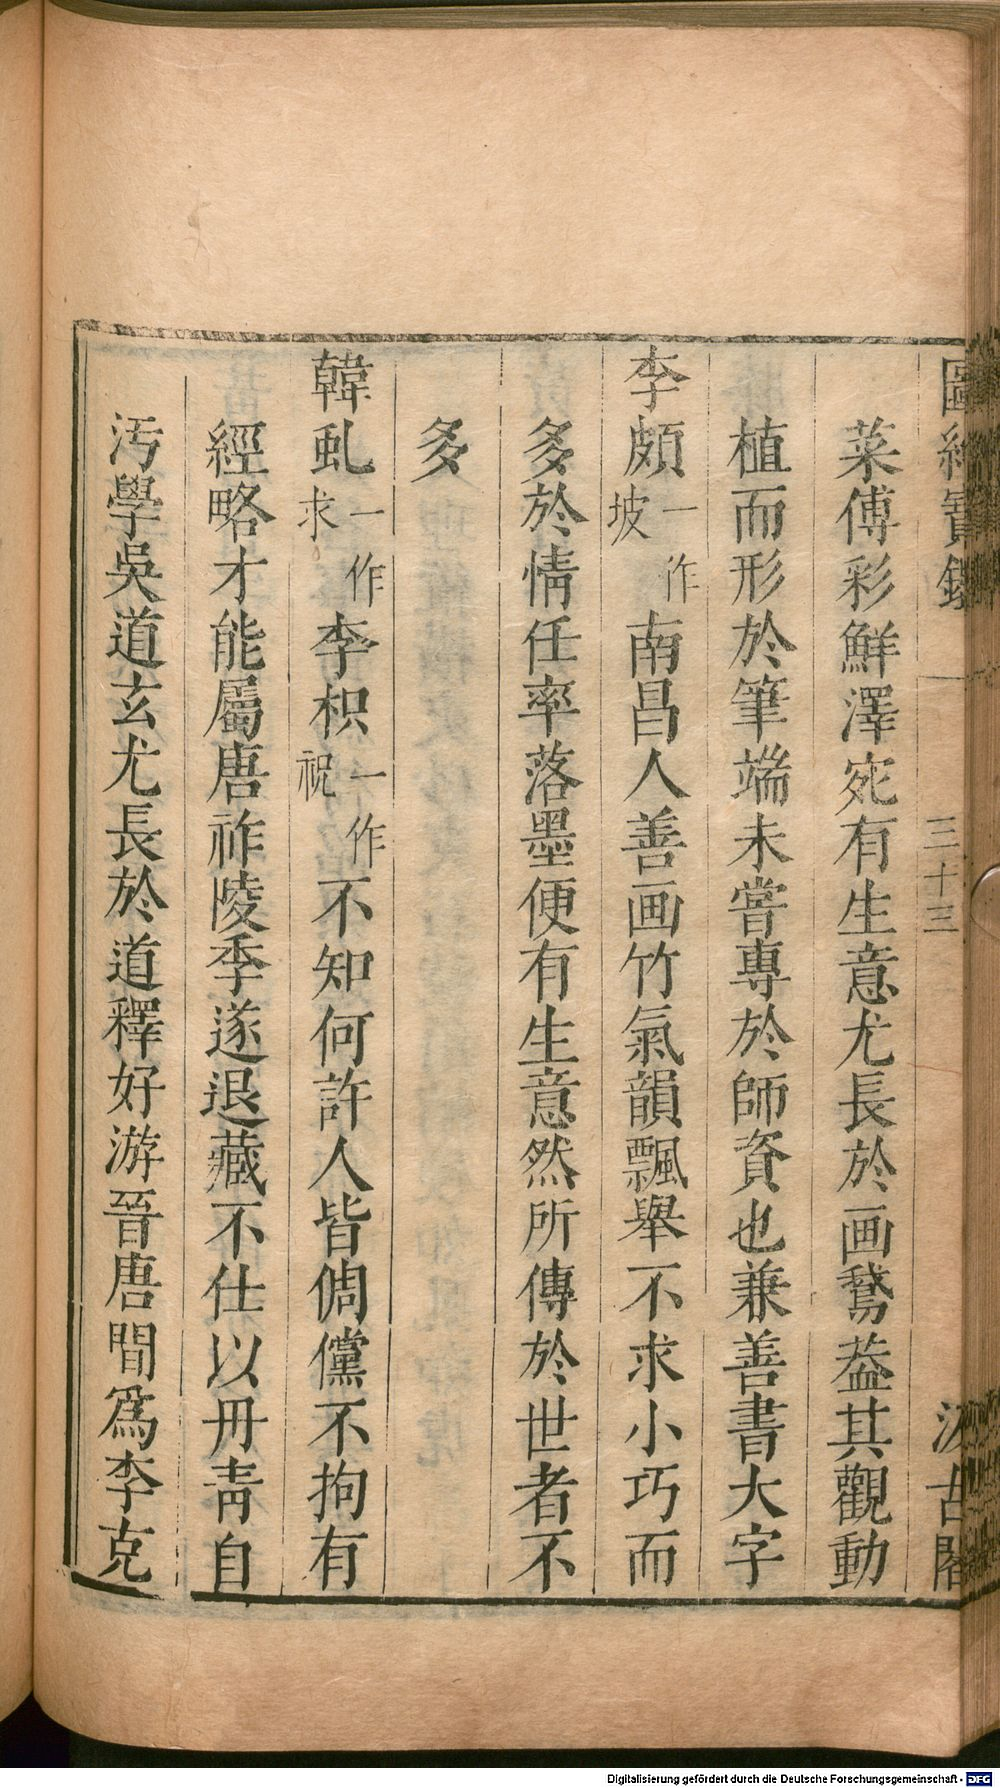 圖繪寶鑑 三十三 汲古閣
菜傅彩鮮澤宛有生意尤長於画鵞葢其觀動
植而形於筆端未甞專於師資也兼善書大字
李頗一作坡南昌人善画竹氣韻飄舉不求小巧而
多於情任率落墨便有生意然所傳於世者不
多
韓虬一作求李枳一作祝不知何許人皆倜儻不拘有
經略才能屬唐祚陵季遂退藏不仕以丹青自
汚學吳道玄尤長於道釋好游晉唐間爲李克
Digitalisierung gefördert durch die Deutsche Forschungsgemeinschaft - DFG